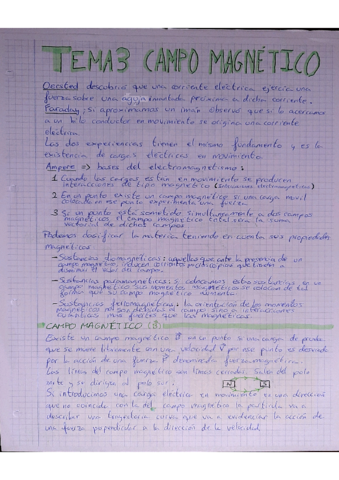 TEMA 3 CAMPO MAGNÉTICO
Oersted descubrió que una corriente eléctrica ejercía una
fuerza sobre una aguja imantada próxima a dicha corriente.
Faraday: Si aproximamos un imán observó que si lo acercamos
a un hilo conductor en movimiento se origina una corriente
eléctrica.
Las dos experiencias tienen el mismo fundamento y es la
existencia de cargas eléctricas en movimiento.
Ampere bases del electromagnetismo:
1 Cuando las cargas están en movimiento se producen
interacciones de tipo magnético
2 En un punto existe un campo magnético si una carga móvil
colocada en ese punto experimenta una fuerza.
3 Si un punto está sometido simultáneamente a dos campos
magnéticos el campo magnético total será la suma
vectorial de dichos campos
Podemos clasificar la materia teniendo en cuenta sus propiedades
magnéticas:
- Sustancias diamagnéticas: aquellas que ante la presencia de un
campo magnético inducen que tienden a
disminuir el valor del campo.
- Sustancias paramagnéticas: si colocamos esta sustancia en un
campo magnético sus momentos magnéticos
el campo magnético aumenta.
- Sustancias ferromagnéticas: la orientación de los momentos
magnéticos no del campo sino a interacciones
cuánticas más fuertes que las magnéticas.
CAMPO MAGNÉTICO (B)
Existe un campo magnético en un punto si una carga de prueba
que se mueve libremente con una velocidad v por ese punto es desviada
por la acción de una fuerza F denominada fuerza magnética.
Las líneas del campo magnético son líneas cerradas. Salen del polo
norte y se dirigen al polo sur.
N S
Si introducimos una carga eléctrica en movimiento en una dirección
que no coincida con la del campo magnético la partícula va a
describir una trayectoria curva que va a evidenciar la acción de
una fuerza perpendicular a la dirección de la velocidad